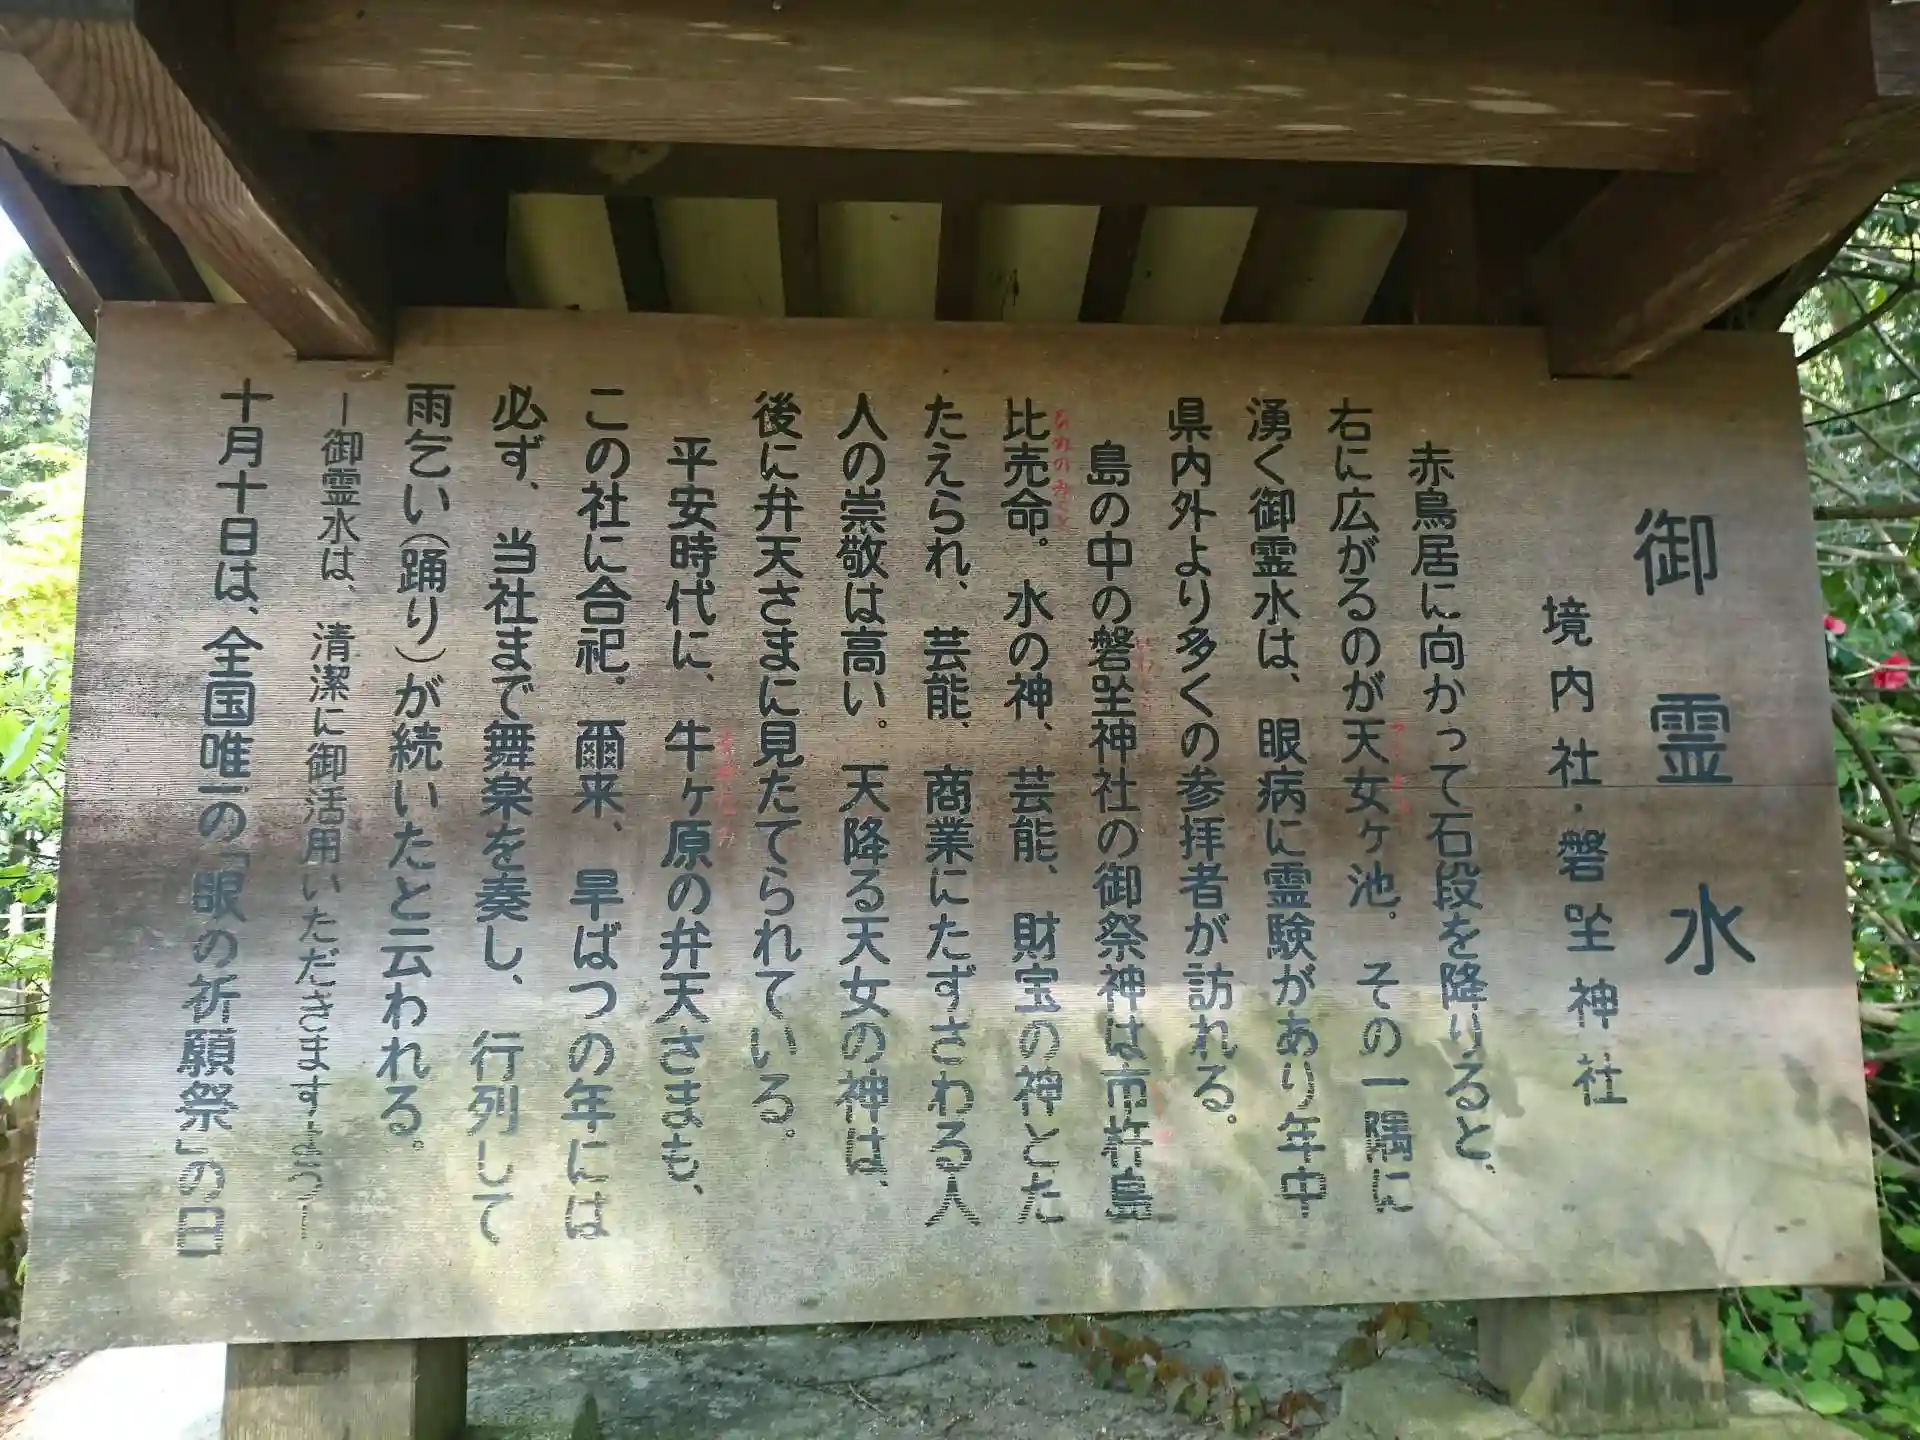 御霊水
境内社・磐坐神社
赤鳥居に向かって石段を降りると、
右に広がるのが天女ヶ池。その一隅に
湧く御霊水は、眼病に霊験があり年中
県内外より多くの参拝者が訪れる。
島の中の磐坐神社の御祭神は市杵島
比売命。水の神、芸能、財宝の神とた
たえられ、芸能、商業にたずさわる人
人の崇敬は高い。天降る天女の神は、
後に弁天さまに見たてられている。
平安時代に、牛ヶ原の弁天さまも、
この社に合祀、爾来、旱ばつの年には
必ず、当社まで舞楽を奏し、行列して
雨乞い(踊り)が続いたと云われる。
ー御霊水は、清潔に御活用いただきますように。
十月十日は、全国唯一の「眼の祈願祭」の日